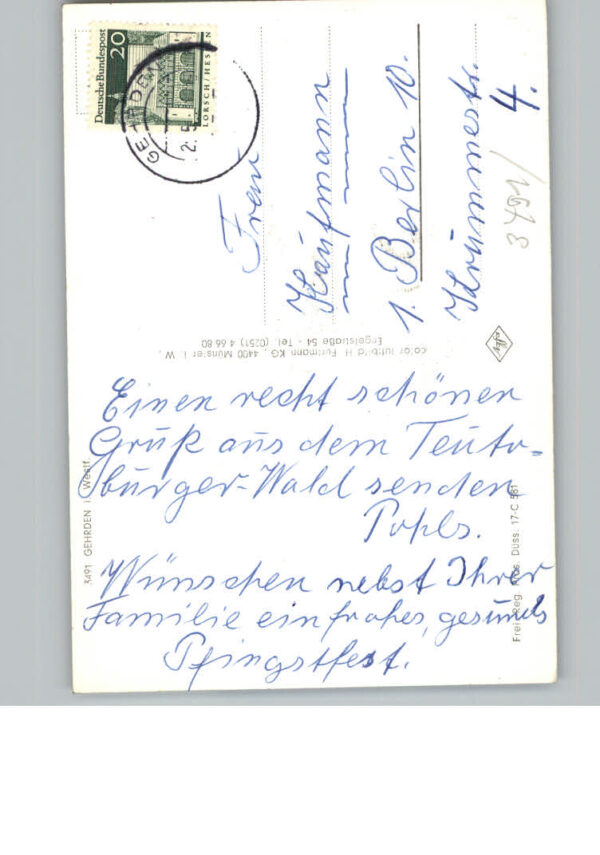 Deutsche Bundespost
20
LORSCH/HESSEN
Frau
Kaufmann
1. Berlin 10.
Krummestr.
4.
3491/
color luftbild H. Fuhrmann KG, 4400 Münster i. W.,
Engelstraße 54 - Tel. (0251) 4 66 80
Einen recht schönen
Gruß aus dem Teuto-
burger-Wald senden
Pohls.
Wünschen nebst Ihrer
Familie ein frohes, gesundes
Pfingstfest.
3491 GEHRDEN i. Westf.
Freig. Reg. Präs. Düss. 17-C 581